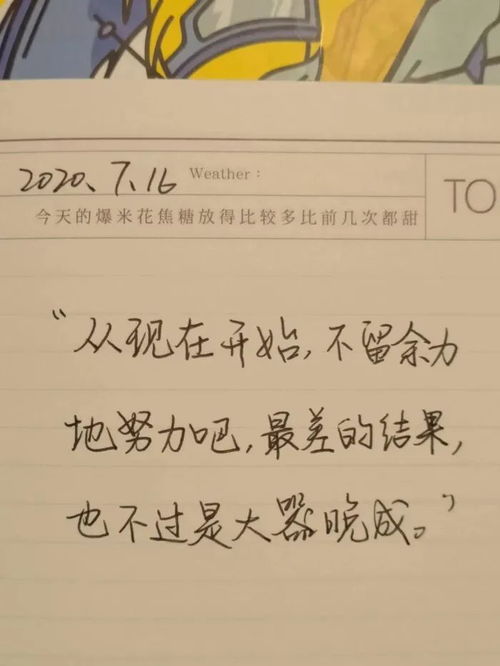 2020.7.16 Weather：
TO
今天的爆米花焦糖放得比较多比前几次都甜
“从现在开始,不留余力
地努力吧,最差的结果,
也不过是大器晚成。”